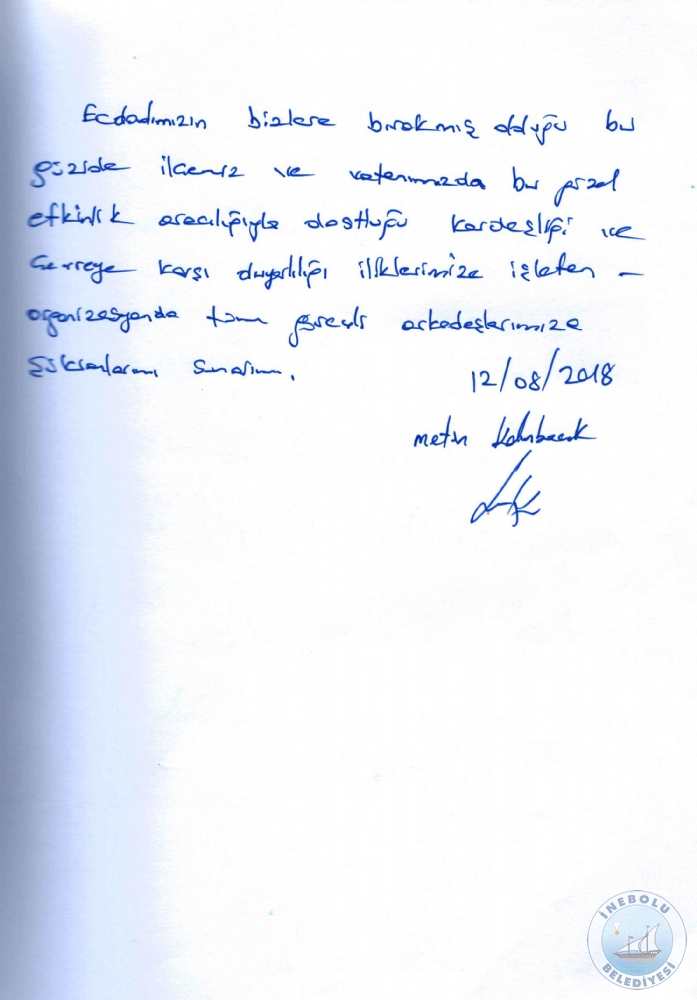 Ecdadımızın bizlere bırakmış olduğu bu
güzide ilçemiz ve vatanımızda bu güzel
etkinlik aracılığıyla dostluğu kardeşliği ve
çevreye karşı duyarlılığı iliklerimize işleten –
organizasyonda tüm görevli arkadaşlarımıza
Şükranlarımı Sunarım.
12/08/2018
metin
İNEBOLU
BELEDİYESİ